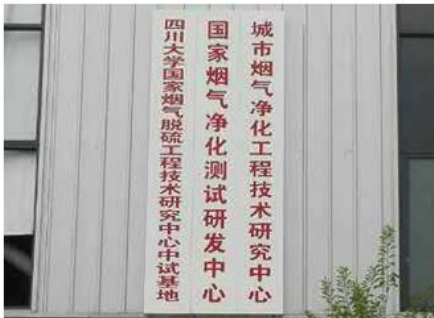 城市烟气净化工程技术研究中心
国家烟气净化测试研发中心
四川大学国家烟气脱硫工程技术研究中心中试基地